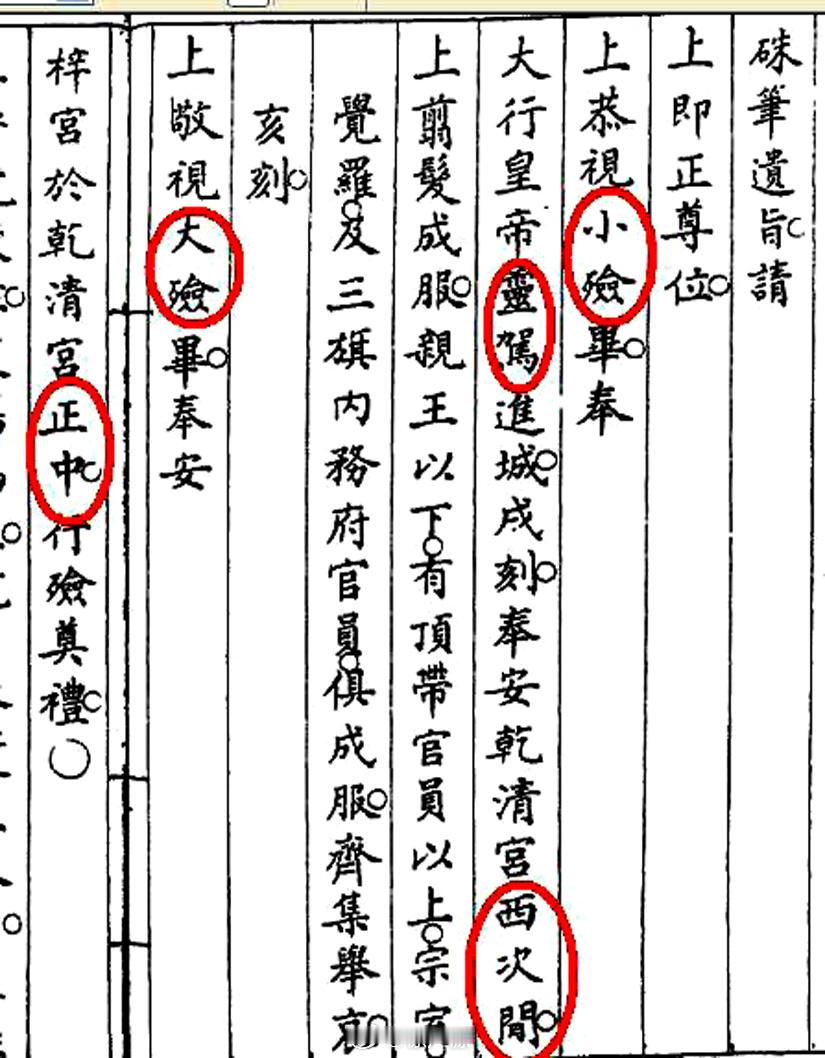 硃筆遺旨。請
上即正尊位。
上恭視小殮畢。奉
大行皇帝靈駕進城。戌刻。奉安乾清宮西次間。
上翦髮成服。親王以下。有頂帶官員以上。宗室。
覺羅。及三旗內務府官員。俱成服。齊集舉哀。
亥刻。
上敬視大殮畢。奉安
梓宮於乾清宮正中。行殮奠禮。○